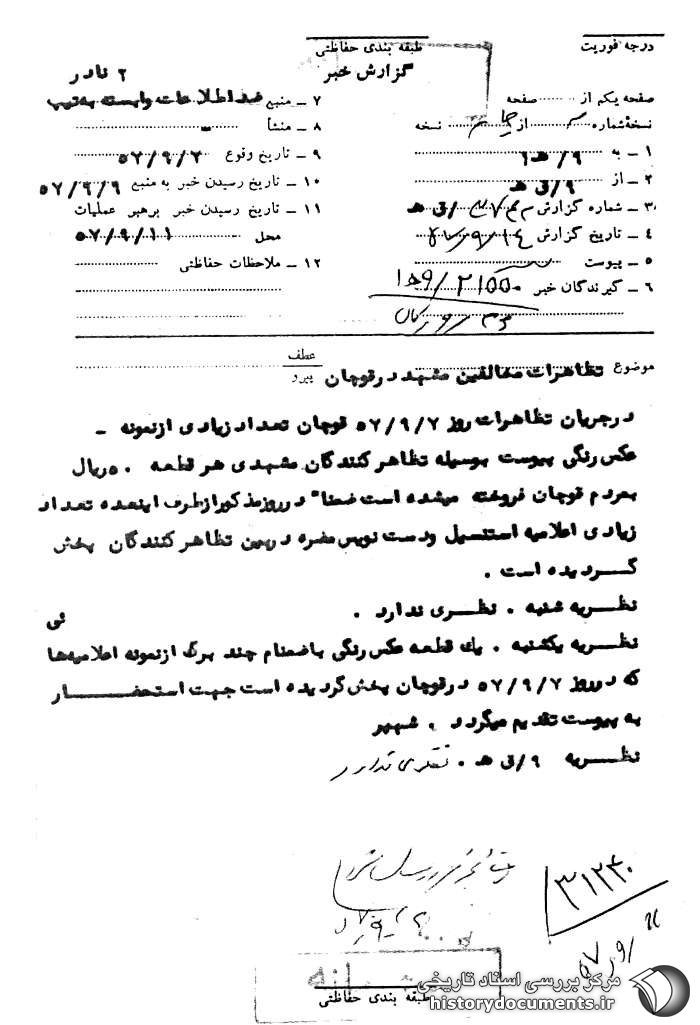 درجه فوریت
طبقه بندی حفاظتی
گزارش خبر
۲ نادر
صفحه یکم از صفحه
نسخهٔ شماره از نسخه
۱ ـ به ۹/ ه۱
۲ ـ از ۹/ق ه
۳ ـ شماره گزارش /ق ه
۴ ـ تاریخ گزارش
۵ ـ پیوست
۶ ـ گیرندگان خبر
۷ ـ منبع ضداطلاعات وابسته به تیپ
۸ ـ منشأ ـ
۹ ـ تاریخ وقوع ۵۷/۹/۷
۱۰ ـ تاریخ رسیدن خبر به منبع ۵۷/۹/۹
۱۱ ـ تاریخ رسیدن خبر برهبر عملیات
محل ۵۷/۹/۱۱
۱۲ ـ ملاحظات حفاظتی
موضوع تظاهرات مخالفین مشهد در قوچان
عطف
پیرو
در جریان تظاهرات روز ۵۷/۹/۷ قوچان تعداد زیادی از نمونه ـ
عکس رنگی پیوست بوسیله تظاهر کنندگان مشهدی هر قطعه ۵۰ ریال
بمردم قوچان فروخته میشده است ضمنا" در روز مذکور از طرف اینعده تعداد
زیادی اعلامیه استنسیل و دست نویس مضره در بین تظاهر کنندگان پخش
گردیده است .
نظریه شنبه . نظری ندارد .
نظریه یکشنبه . یک قطعه عکس رنگی با ضمنام چند برگ از نمونه اعلامیه‌ها
که در روز ۵۷/۹/۷ در قوچان پخش گردیده است جهت استحضار
به پیوست تقدیم میگردد . شهپر
نظریه ۹/ق ه . نظری ندارد
۳۱۲۴۰
طبقه بندی حفاظتی
مرکز بررسی اسناد تاریخی
historydocuments.ir